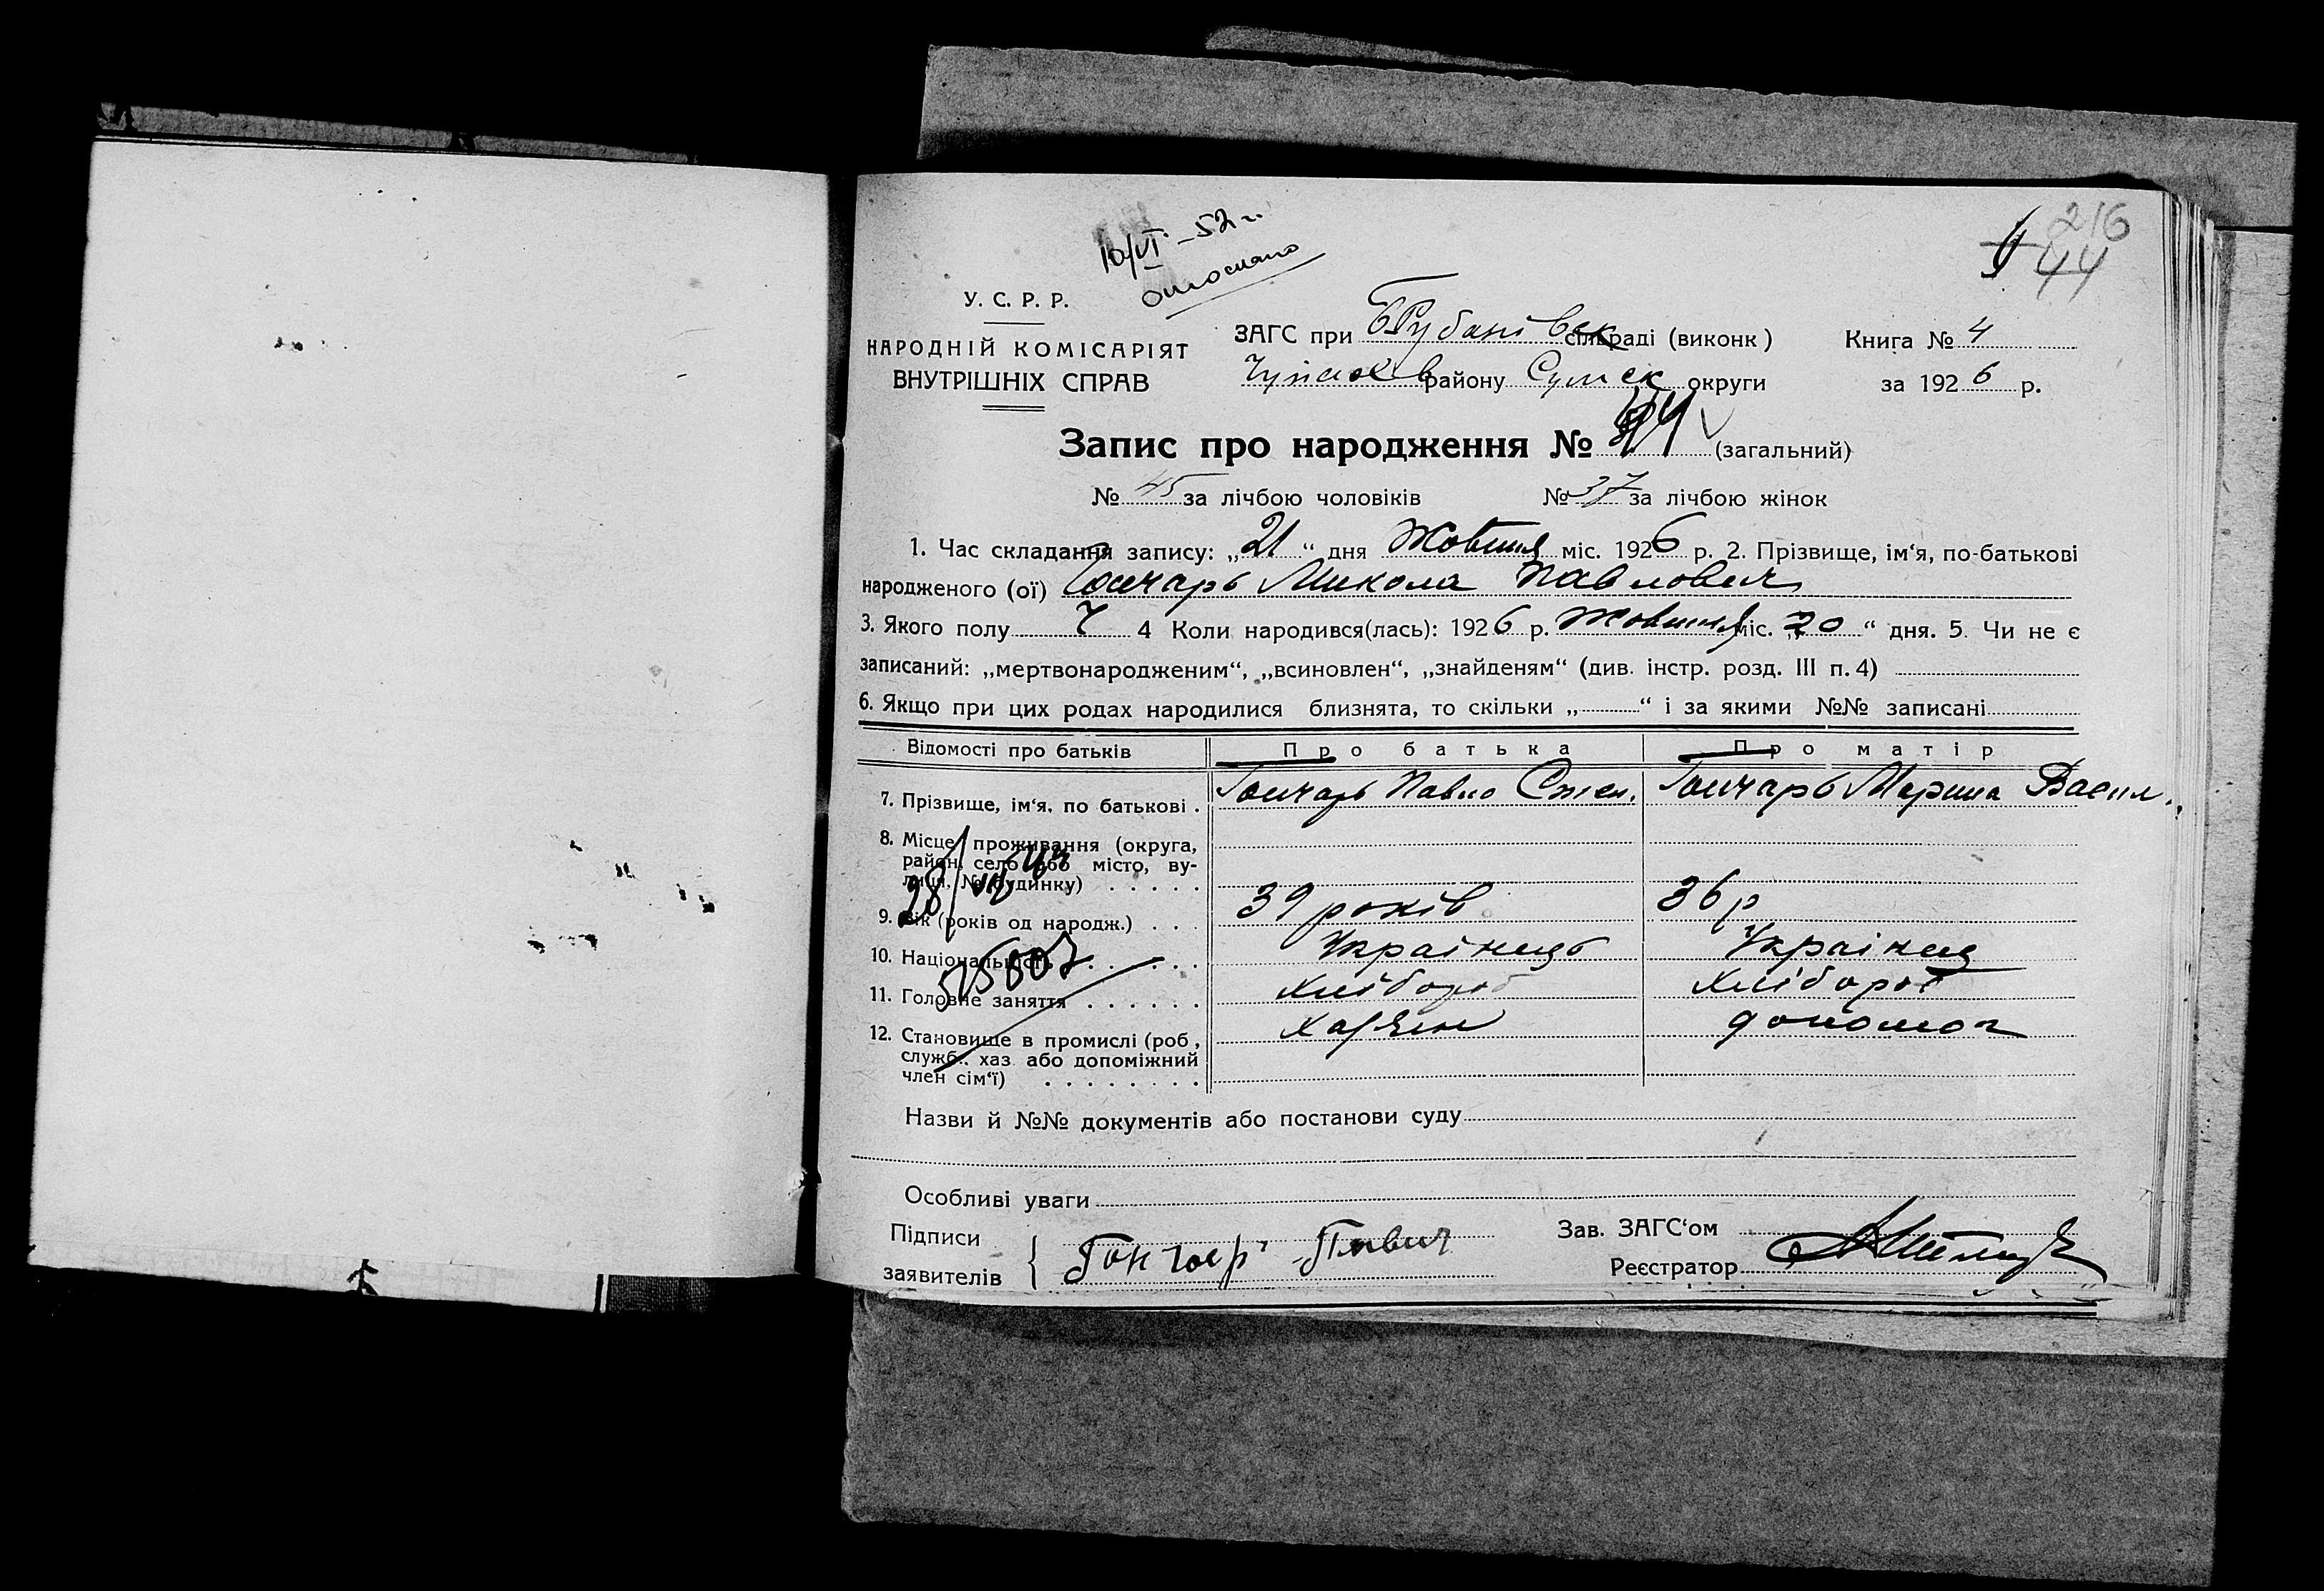 216
44
10/VI – 52 г.
У. С. Р. Р.
НАРОДНІЙ КОМІСАРІЯТ
ВНУТРІШНІХ СПРАВ
ЗАГС при БРубанівск сільраді (виконк) Книга № 4
району Сумск округи за 1926 р.
Запис про народження № (загальний)
№ 45 за лічбою чоловіків № 37 за лічбою жінок
1. Час складання запису: „21“ дня Жовтня міс. 1926 р. 2. Прізвище, ім‘я, по-батькові
народженого (ої) Гончарь Микола Павлович
3. Якого полу Ч 4 Коли народився(лась): 1926 р. Жовтня міс. „20“ дня. 5. Чи не є
записаний: „мертвонародженим“, „всиновлен“, „знайденям“ (див. інстр. розд. III п. 4)
6. Якщо при цих родах народилися близнята, то скільки „ “ і за якими №№ записані
Відомості про батьків Про батька Про матір
7. Прізвище, ім‘я, по батькові . Гончарь Павло Гончарь Марина Васил.
8. Місце проживання (округа,
район, село або місто, ву-
лиця, № будинку) . . . . .
28/VII
9. Вік (років од народж.) . . . 39 років 36 р
10. Національність . . . . . . Українець Українка
525807
11. Головне заняття . . . . . . Хлібороб Хлібороб
12. Становище в промислі (роб, Хазяїн допомог
служб., хаз або допоміжний
член сім‘ї) . . . . . . . .
Назви й №№ документів або постанови суду
Особливі уваги
Підписи Зав. ЗАГС‘ом
заявителів { Гончар Реєстратор